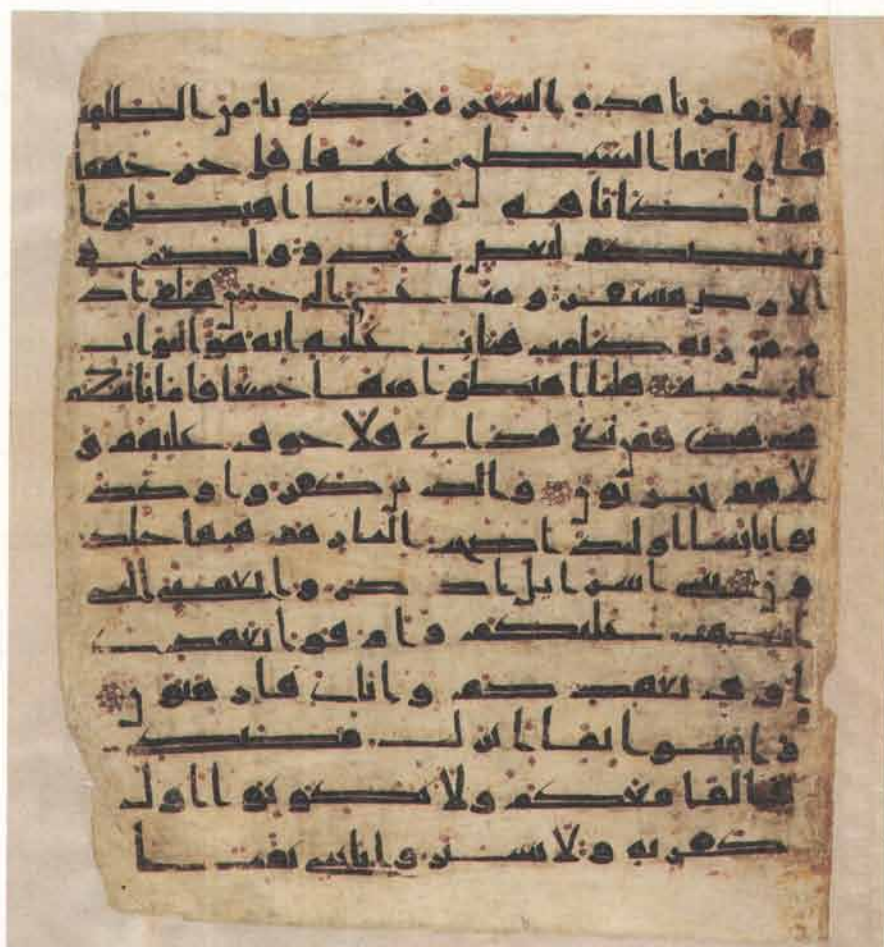 ولا تقربا هذه الشجرة فتكونا من الظلمين
فازلهما الشيطن عنها فاخرجهما
مما كانا فيه وقلنا اهبطوا
بعضكم لبعض عدو ولكم في
الارض مستقر ومتاع الى حين فتلقى اد
م من ربه كلمت فتاب عليه انه هو التواب
الرحيم قلنا اهبطوا منها جميعا فاما ياتينكم
مني هدى فمن تبع هداي فلا خوف عليهم و
لا هم يحزنون والذين كفروا وكذ
بوا بايتنا اولئك اصحب النار هم فيها خلد
ون يبني اسرايل اذكروا نعمتي التي
انعمت عليكم واوفوا بعهدي
اوف بعهدكم واياي فارهبون
وامنوا بما انزلت مصد
قا لما معكم ولا تكونوا اول
كفر به ولا تشتروا بايتي ثمنا